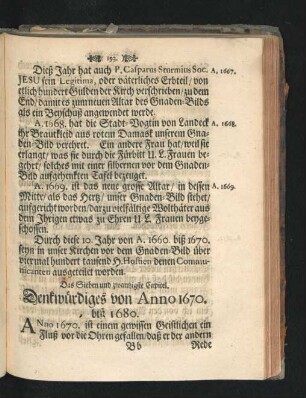 193.
Dieß Jahr hat auch P. Casparus Stormius Soc. A. 1667.
JESU sein Legitima, oder väterliches Erbteil / von
etlich hundert Gulden der Kirch verschriben / zu dem
End / damit es zum neuen Altar des Gnaden-Bilds
als ein Beyschuß angewendt werde.
A. 1668. hat die Stadt-Vogtin von Landeck A. 1668.
ihr Brautkleid aus rotem Damast unserem Gna-
den-Bild verehret. Ein andere Frau hat / weil sie
erlangt / was sie durch die Fürbitt U. L. Frauen be-
gehrt / solches mit einer silbernen vor dem Gnaden-
Bild aufgehenkten Tafel bezeuget.
A. 1669. ist das neue grosse Altar / in dessen A. 1669.
Mitte / als das Hertz / unser Gnaden-Bild stehet /
aufgericht worden / darzu vielfältige Wolthäter aus
dem Ihrigen etwas zu Ehren U L. Frauen beyge-
schossen.
Durch diese 10 Jahr von A. 1660. biß 1670.
seyn in unser Kirchen vor dem Gnaden-Bild über
viermal hundert tausend H. Hostien denen Commu-
nicanten ausgeteilet worden.
Das Sieben und zwantzigste Capitel.
Denkwürdiges von Anno 1670.
biß 1680.
ANno 1670. ist einem gewissen Geistlichen ein
Fluß vor die Ohren gefallen / daß er der andern
Bb Rede